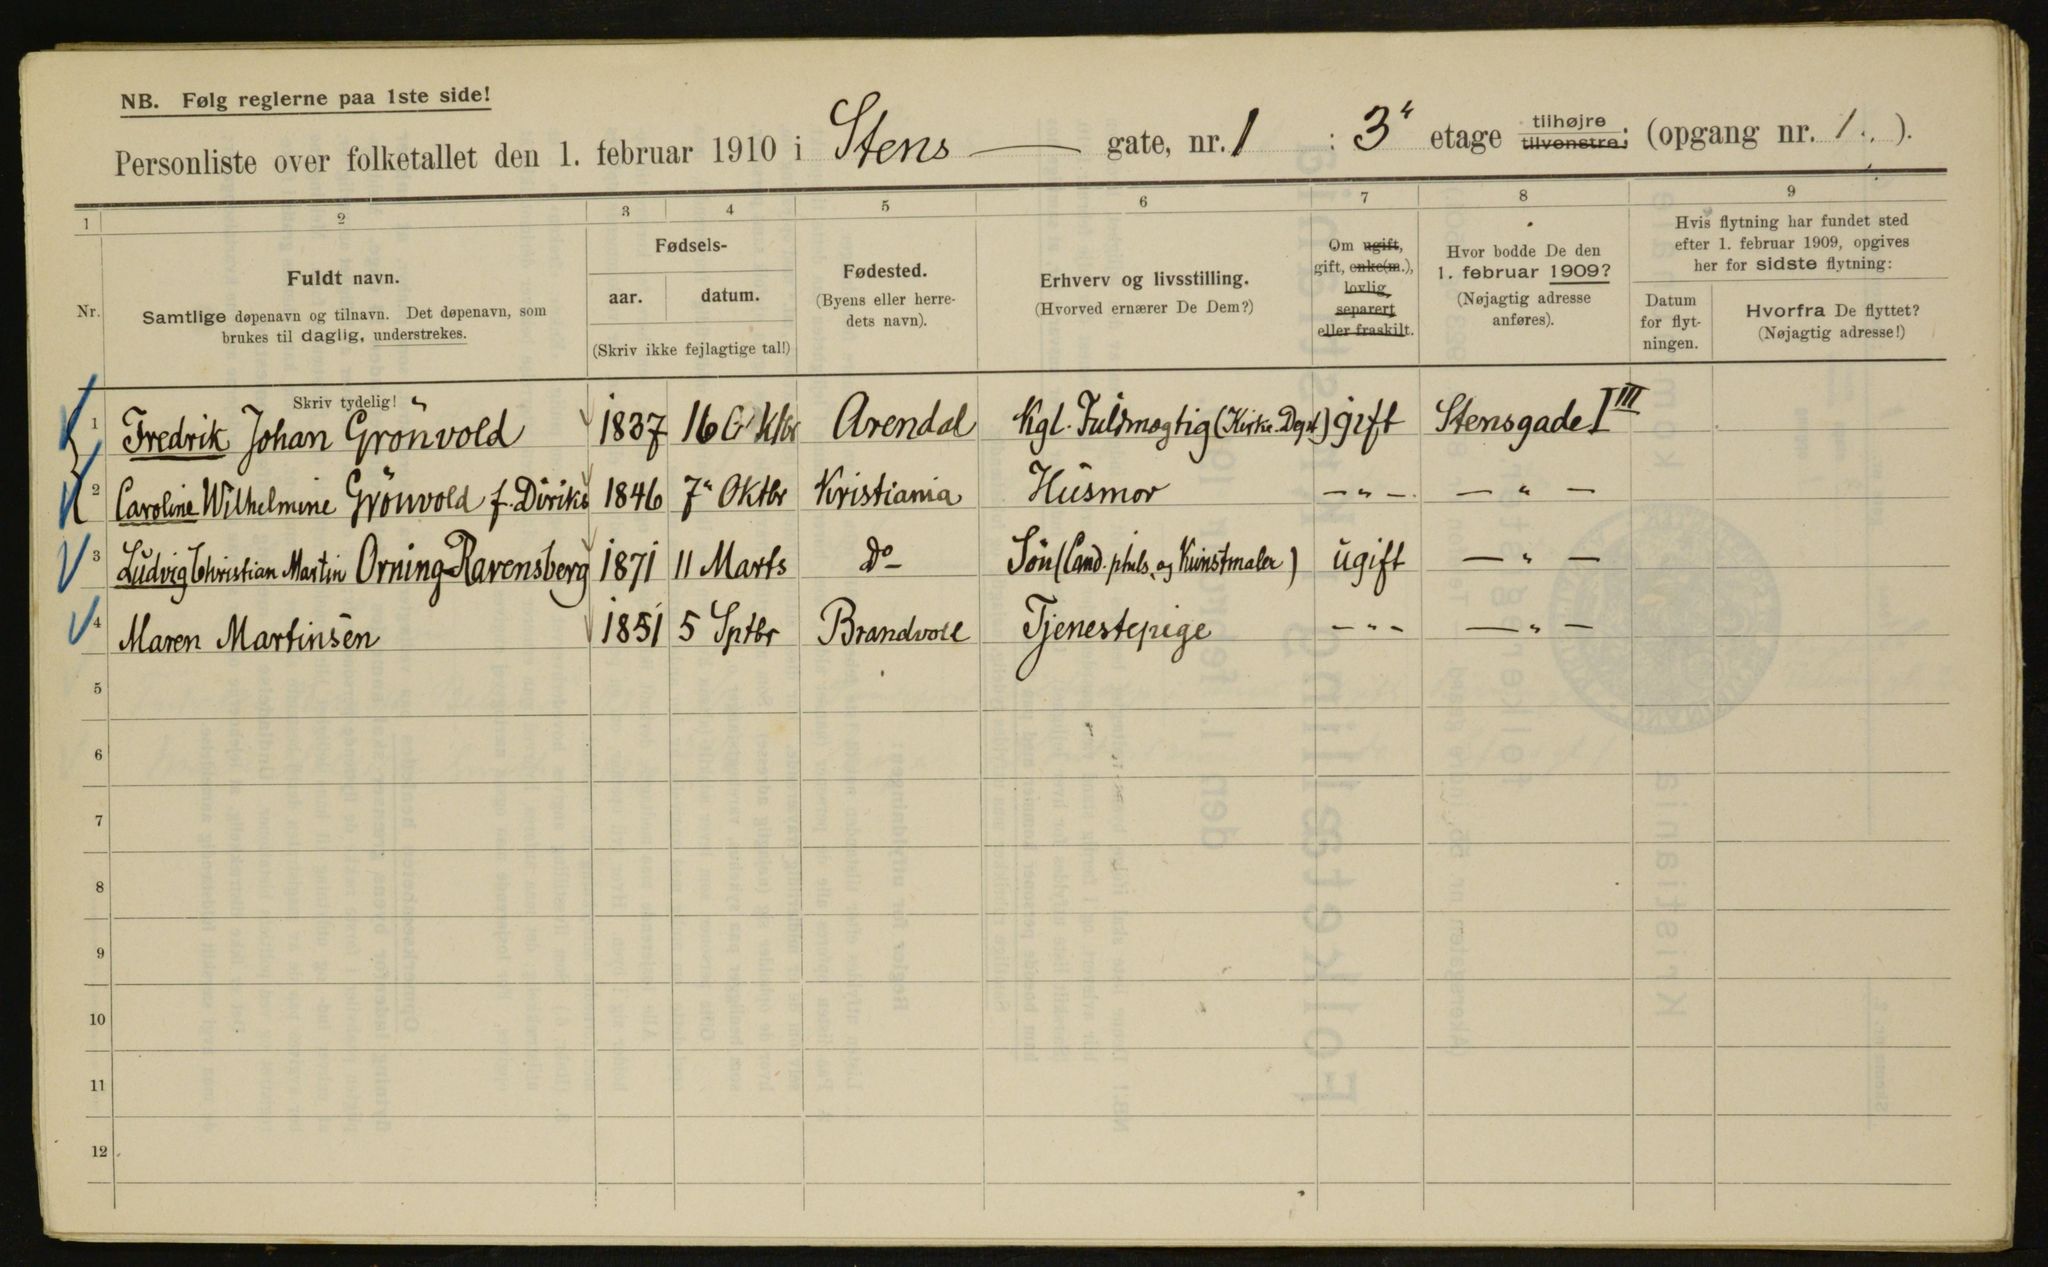 NB. Følg reglerne paa 1ste side!
Personliste over folketallet den 1. februar 1910 i Stens — gate, nr. 1 : 3" etage tilhøjre tilvenstre; (opgang nr. 1. ).
1 2 3 4 5 6 7 8 9
Nr.
Fuldt navn.
Samtlige døpenavn og tilnavn. Det døpenavn, som
brukes til daglig, understrekes.
Fødsels-
aar. datum.
(Skriv ikke fejlagtige tal!)
Fødested.
(Byens eller herre-
dets navn).
Erhverv og livsstilling.
(Hvorved ernærer De Dem?)
Om ugift,
gift, enke(m.),
lovlig
separert
eller fraskilt.
Hvor bodde De den
1. februar 1909?
(Nøjagtig adresse
anføres).
Hvis flytning har fundet sted
efter 1. februar 1909, opgives
her for sidste flytning:
Datum
for flyt-
ningen.
Hvorfra De flyttet?
(Nøjagtig adresse!)
Skriv tydelig!
1 Fredrik Johan Grønvold 1837 16 Oktbr Arendal Kgl. Fuldmægtig (Kirke. Dept) gift Stensgade I III
2 Caroline Wilhelmine Grönvold f. Diriks 1846 7" Oktbr Kristiania Husmor — " — — " —
3 Ludvig Christian Martin Orning-Ravensberg 1871 11 Marts Do Sön (Cand. phils. og Kunstmaler) ugift — " —
4 Maren Martinsen 1851 5 Sptbr Brandvold Tjenestepige — " — — " —
5
6
7
8
9
10
11
12